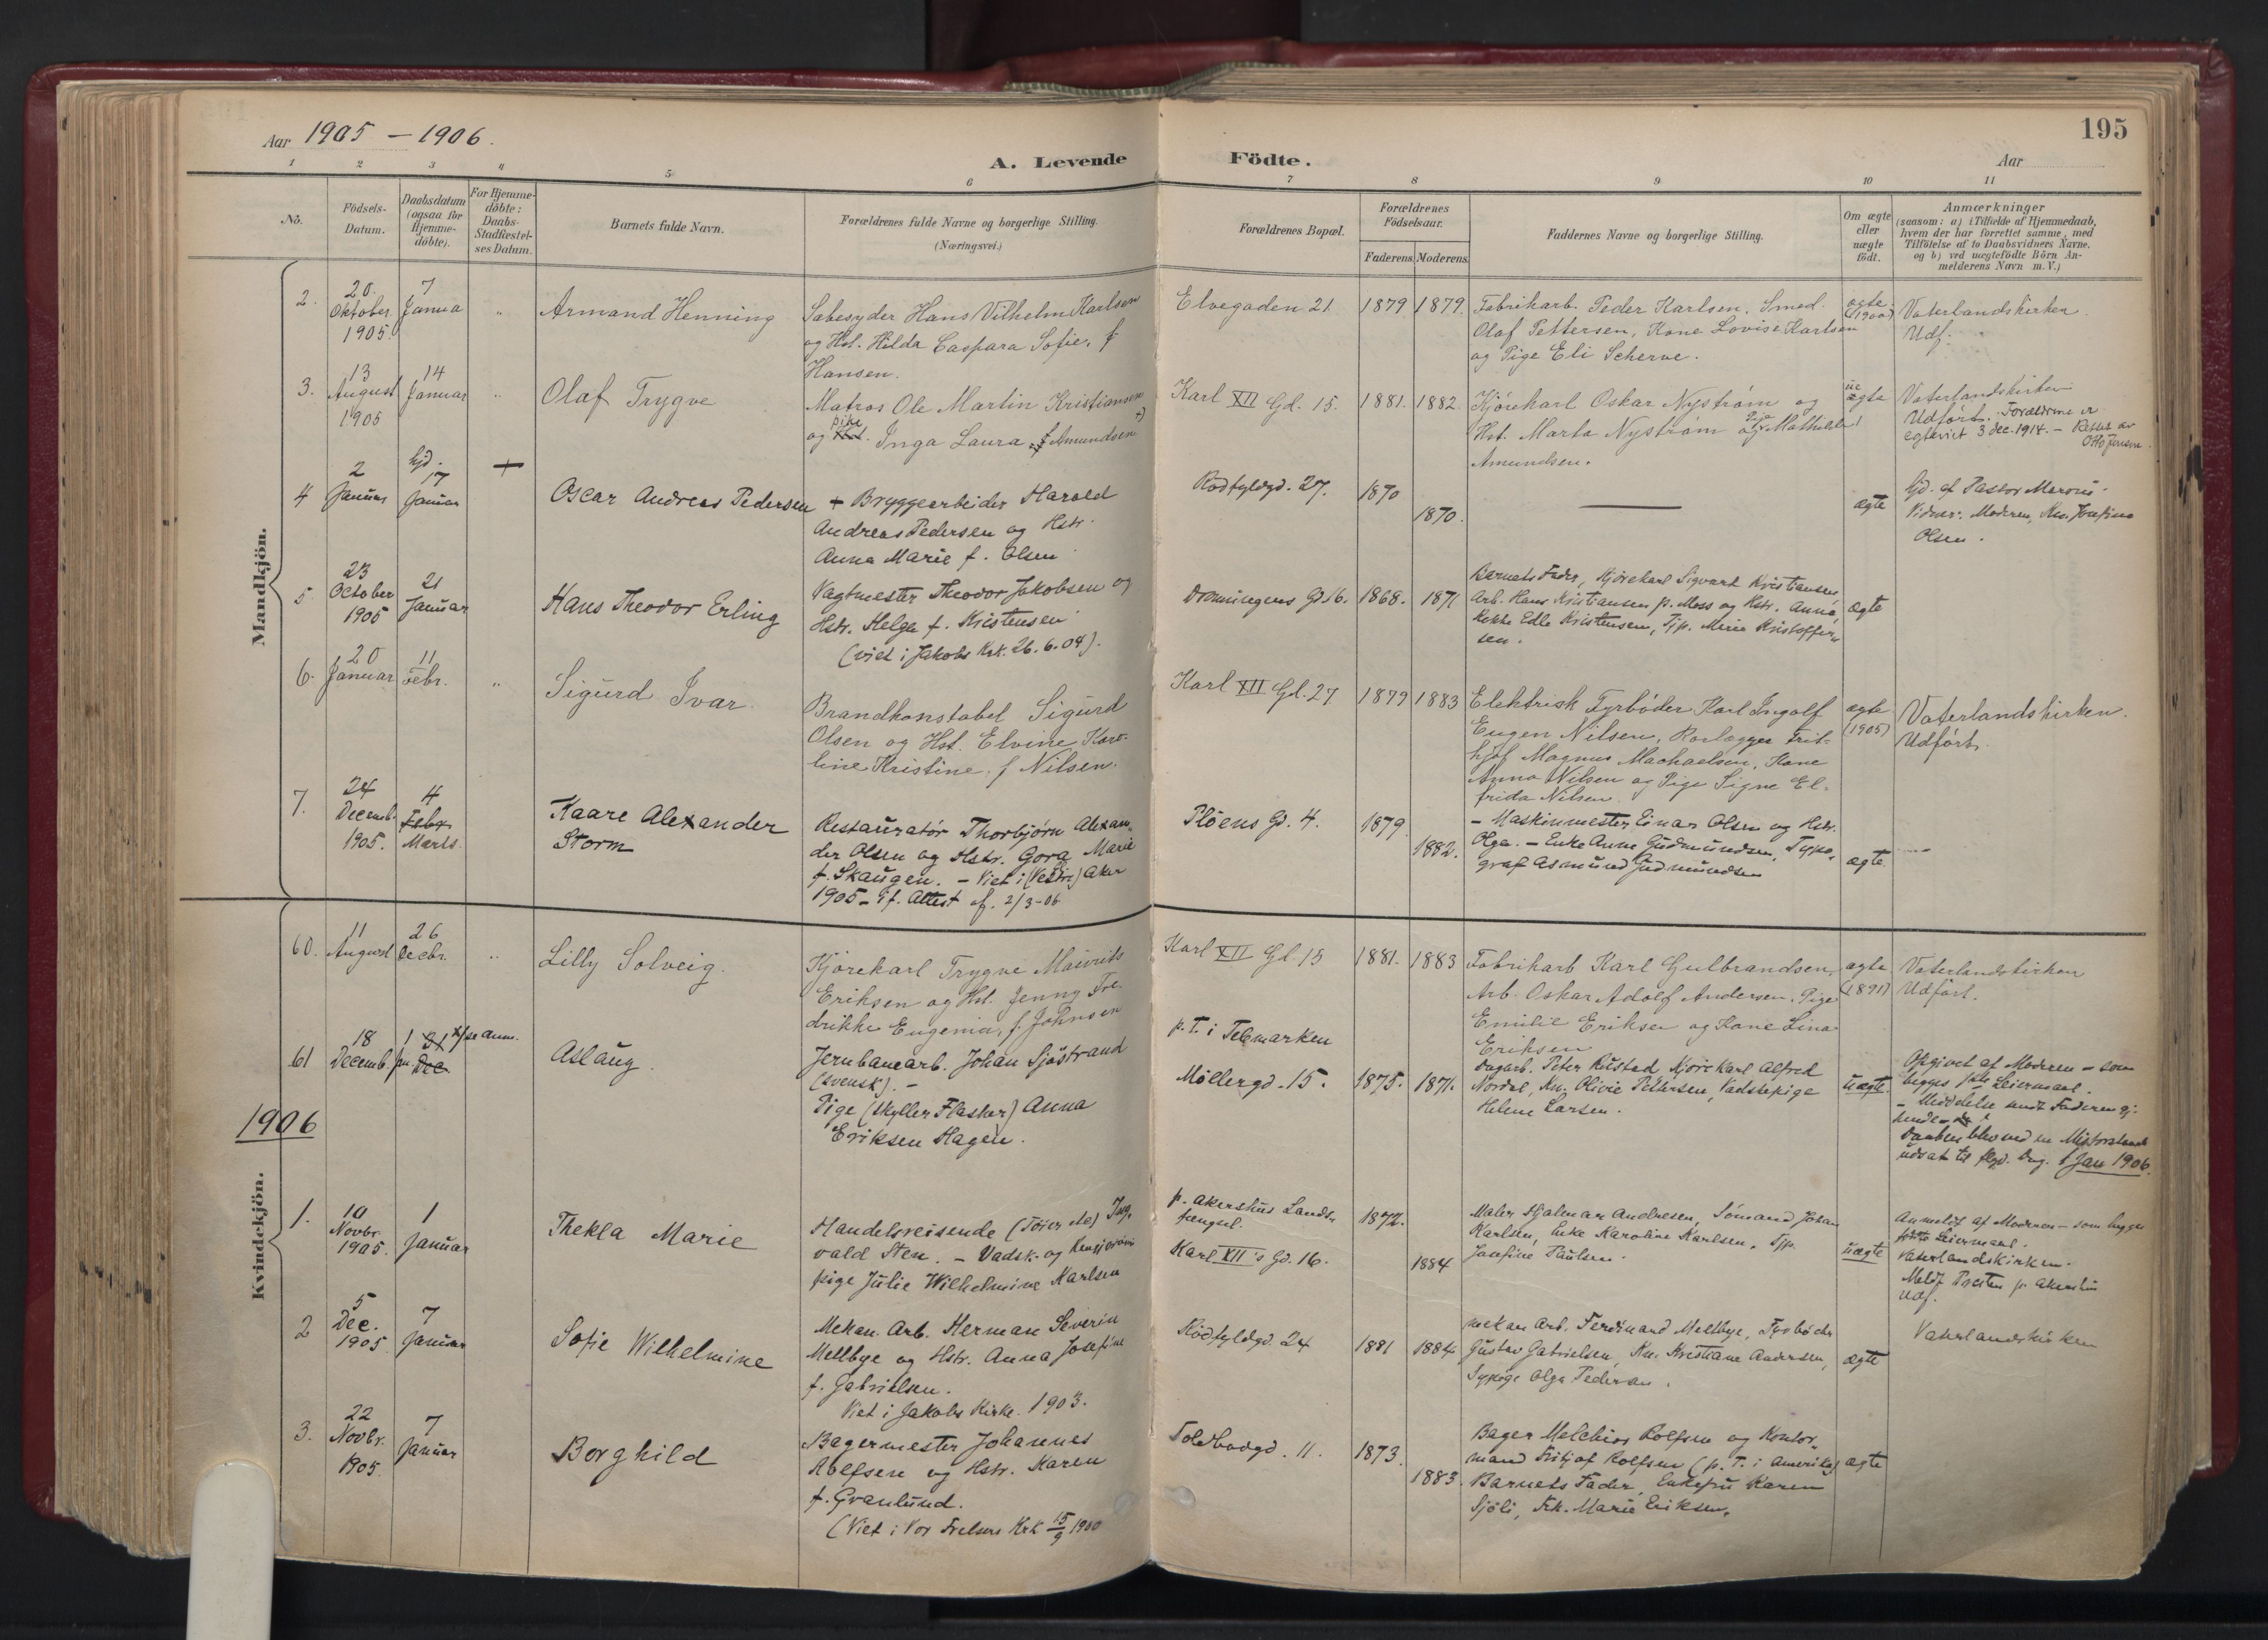 Aar 1905 – 1906.
A. Levende Födte.
195
Aar
1 2 3 4 5 6 7 8 9 10 11
No.
Födsels-
Datum.
Daabsdatum
(ogsaa for
Hjemme-
döbte).
For Hjemme-
döbte:
Daabs-
Stadfæstel-
ses Datum.
Barnets fulde Navn.
Forældrenes fulde Navne og borgerlige Stilling.
(Næringsvei.)
Forældrenes Bopæl.
Forældrenes
Födselsaar.
Faderens. Moderens.
Faddernes Navne og borgerlige Stilling.
Om ægte
eller
uægte
födt.
Anmærkninger
(saasom: a) i Tilfælde af Hjemmedaab,
hvem der har forrettet samme, med
Tilföielse af to Daabsvidners Navne.
og b) ved uægtefödte Börn An-
melderens Navn m. V.)
Mandkjön.
2.
20.
Oktober
1905.
7
Janua
"
Armand Henning
Sæbesyder Hans Vilhelm Karlsen
og Hst. Hilda Caspara Sofie, f
Hansen.
Elvegaden 21.
1879 1879.
Fabrikarb. Peder Karlsen, Smed
Olaf Pettersen, Kone Lovise Karlsen
og Pige Eli Scherve.
ægte
(1900)
Vaterlandskirken.
Udf.
3.
13
August
1905
14
Januar
"
Olaf Trygve
Matros Ole Martin Kristiansen
og pike Hst. Inga Laura f Amundsen
Karl XII Gd. 15.
1881. 1882.
Kjørekarl Oskar Nystrøm og
Hst. Marta Nystrøm og Pige Mathilde
Amundsen.
ægte
Vaterlandskirken
Udført. Forældrene er
egteviet 3 dec. 1914. – Rettet av
Otto Jensen.
4
2
Januar
hjd.
17
Januar
+
Oscar Andreas Pedersen
+ Bryggearbeider Harald
Andreas Pedersen og Hstr.
Anna Marie f. Olsen
Rødfyldgd. 27.
1870
1870.
ægte
hjd. af Pastor Maroni.
Vidner: Moderen, Kn. Josefine
Olsen.
5.
23
October
1905
21
Januar
Hans Theodor Erling
Vagtmester Theodor Jakobsen og
Hstr. Helga f. Kristensen
(viet i Jakobs Krk. 26.6.04).
Dronningens Gd. 16.
1868. 1871
Barnets Fader, Kjørekarl Sigvart Kristiansen,
Arb. Hans Kristiansen p. Moss og Hstr. Anna,
Edle Kristensen, Tjp. Marie Kristoffer-
sen.
ægte
6.
20
Januar
11
Febr.
"
Sigurd Ivar.
Brandkonstabel Sigurd
Olsen og Hst. Elvine Karo-
line Kristine, f Nilsen.
Karl XII Gd. 27
1879 1883
Elektrisk Fyrbøder Karl Ingolf
Eugen Nilsen, Rørlægger Frit-
hjof Magnus Machaelsen, Kone
Anna Nilsen og Pige Signe El-
frida Nilsen.
ægte
(1905)
Vaterlandskirken.
Udført.
7.
24
Decemb.
1905.
4
Febr.
Marts.
Kaare Alexander
Storm
Restauratør Thorbjørn Alexan-
der Olsen og Hstr. Gora Marie
f. Skaugen. – Viet i (Vestre) Aker
1905 – if. Attest af. 2/3-06
Pløens Gd. 4.
1879.
1882.
– Maskinmester Einar Olsen og Hstr.
Olga. – Enke Anne Gudmundsen, Typo-
graf Asmund Gudmundsen
ægte.
60.
11
August
26
Decbr.
"
Lilly Solveig.
Kjørekarl Trygve Mauritz
Eriksen og Hst. Jenny Fre-
drikke Eugenia, f. Johnsen
Karl XII Gd 15
1881. 1883
Fabrikarb Karl Gulbrandsen,
Arb. Oskar Adolf Andersen, Pige
Emilie Eriksen og Kone Lina
Eriksen
ægte
(1891)
Vaterlandskirken
Udført.
61
18
Decemb.
1 31 x/se Anm.
Jan Dec
Aslaug.
Jernbanearb. Johan Sjøstrand
(svensk). –
Pige (skyller Flasker) Anna
Eriksen Hagen.
p. T. i Telemarken
Møllergd. 15.
1875. 1871.
Dagarb. Peter Rustad, Kjørekarl Alfred
Nordal, Kn. Olivie Pettersen, Vadskepige
Helene Larsen.
uægte.
Opgivet af Moderen – som
begges 1ste Leiermaal.
– Meddelse sendt Faderen gj.
hende.
Daaben blev ved en Misforstaaelse
udsat til flgd. Dag. 1 Jan 1906.
1906
Kvindekjön.
1.
10
Novbr.
1905.
1
Januar
Thekla Marie
Handelsreisende (Tøier etc) Ing-
vald Sten. – Vadsk- og Rengjørings
pige Julie Wilhelmine Karlsen
p. Akershus Lands-
fængsel.
Karl XII's Gd. 16.
1872.
1884
Maler Hjalmar Andresen, Sømand Johan
Karlsen, Enke Karoline Karlsen, Tjp.
Josefine Paulsen.
uægte
Anmeldt af Moderen – som begges
første Leiermaal.
Vaterlandskirken.
Meldt Presten p. Akershus
Udf.
2
5
Dec.
1905
7
Januar
Sofie Wilhelmine
Mekan. Arb. Herman Severin
Mellbye og Hstr. Anna Josefine
f. Gabrielsen.
Viet i Jakobs Kirke. 1903.
Rødfyldgd. 24
1881 1884
Mekan Arb. Ferdinand Mellbye, Fyrbøder
Gustav Gabrielsen, Kn. Kristiane Andersen,
Sypige Olga Pedersen.
ægte
Vaterlandskirken
3.
22
Novbr.
1905.
7
Januar
Borghild
Bagermester Johannes
Rolfsen og Hstr. Karen
f. Granlund.
(Viet i Vor Frelsers Krk 15/9 1900
Toldbodgd. 11.
1873.
1883.
Bager Melchior Rolfsen og Kontor-
mand Fritjof Rolfsen (p. T. i Amerika)
Barnets Fader, Enkefru Karen
Sjøli, Frk. Marie Eriksen.
ægte